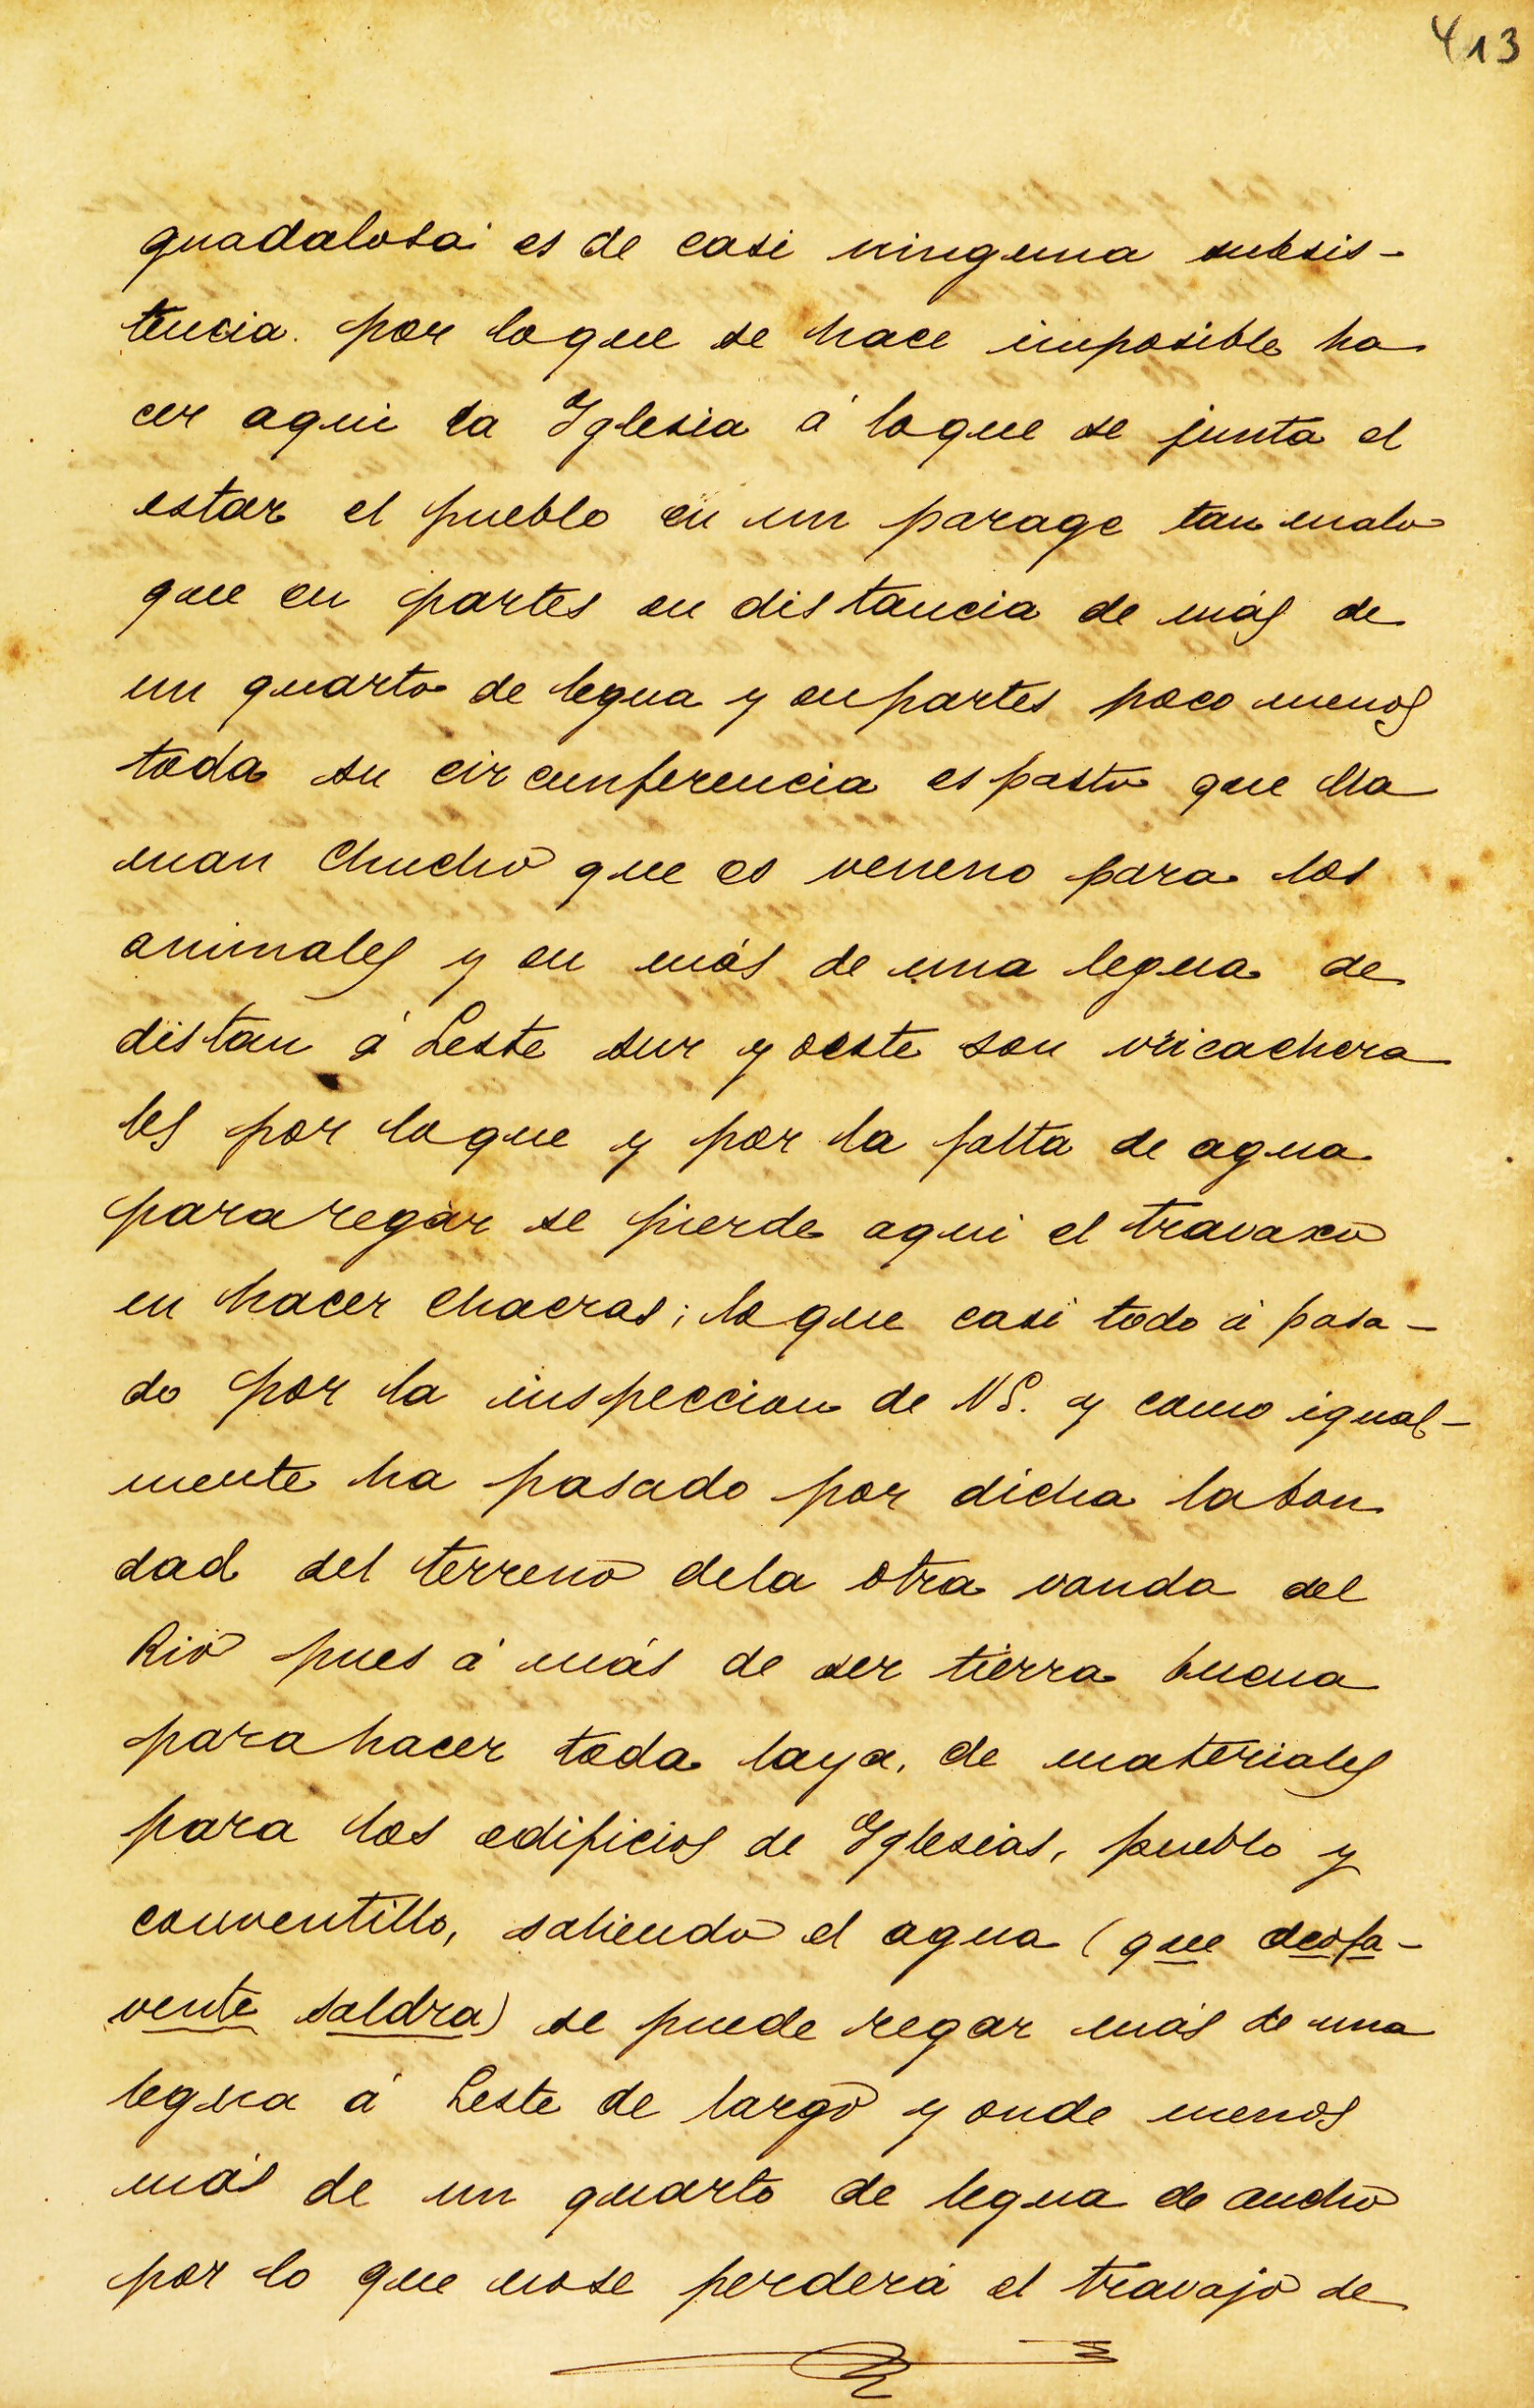 413
guadalosa es de casi ninguna subsis-
tencia. por loque se hace imposible ha
cer aqui la Iglesia á loque se junta el
estar el pueblo en un parage tan malo
que en partes en distancia de más de
un quarto de legua y en partes poco menos
toda su circunferencia es pasto que lla
man Chucho que es veneno para los
animales y en más de una legua de
distan á Leste sur y oeste son vicachera
les por loque y por la falta de agua
para regar se pierde aqui el travaxo
en hacer Chacras; lo que casi todo á pasa-
do por la inspeccion de V S. y como igual-
mente ha pasado por dicha la bon
dad del terreno dela otra vanda del
Rio pues á más de ser tierra buena
para hacer toda laya, de materiales
para los edificios de Iglesias, pueblo y
conventillo, saliendo el agua (que
vente saldra) se puede regar más de una
legua á Leste de largo y onde menos
más de un quarto de legua de ancho
por lo que nose perderá el travajo de